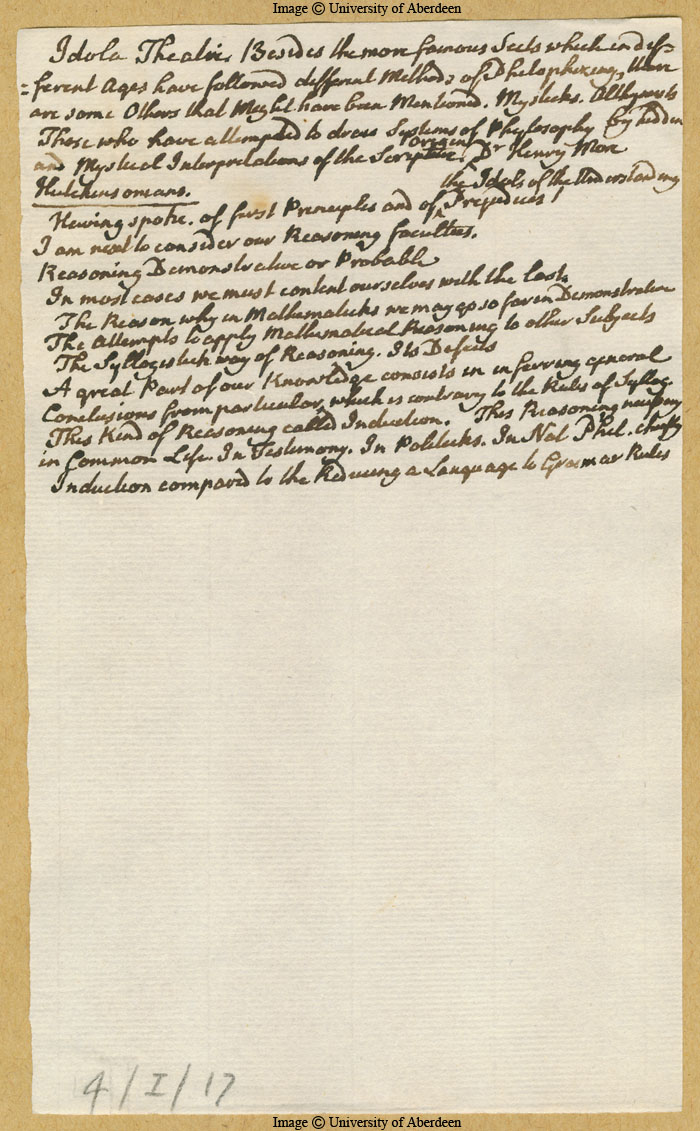 Image © University of Aberdeen
Idola Theatri. Besides the more famous Sects which in dif=
=ferent Ages have followed different Methods of Philophizing, there
are some Others that Might have been Mentioned. Mysticks. Alchymists
Those who have attempted to dress Systems of Phylosophy by hidden
and Mystical Interpretations of the Scripture. Origen Dr Henry More
Hutchinsonians.
Having spoke. of first Principles and of the Idols of the Understanding Prejudices
I am next to consider our Reasoning faculties.
Reasoning Demonstrative or Probable
In most cases we must content ourselves with the last.
The Reason why in Mathematicks we may go so far in Demonstrative
The Attempts to apply Mathematical Reasoning to other Subjects
The Syllogistick way of Reasoning. Its Defects
A great Part of our Knowledge consists in inferring general
Conclusions from particular, which is contrary to the Rules of Syllog.
This Kind of Reasoning called Induction. This Reasoning necessary
in Common Life. In Testimony. In Politicks. In Nat Phil. chiefly
Induction compared to the Reducing a Language to Grammar Rules
4/I/17
Image © University of Aberdeen